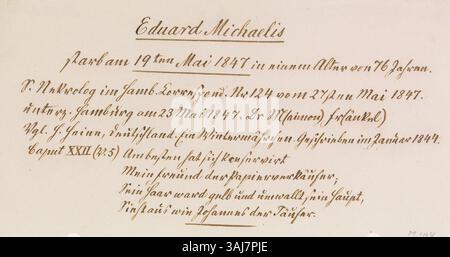 Eduard Michaelis
starb am 19ten Mai 1847 in einem Alter von 76 Jahren.
S. Nekrolog im Hamb. Correspond. Nr 124 vom 27sten Mai 1847.
unterz. Hamburg am 23 Mai 1847. Dr M(aimon) Fränkel)
Vgl. H. Heine, Deutschland. Ein Wintermährchen. Geschrieben im Januar 1844.
Caput XXII (V. 5) Am besten hat sich konservirt
Mein Freund der Papierverkäufer;
Sein Haar ward gelb und umwallt sein Haupt,
Sieht aus wie Johannes der Täufer.
alamy
Image ID: 3AJ7PJE
www.alamy.com